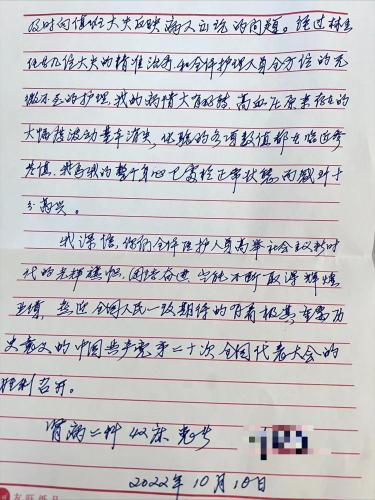 及时向值班大夫反映病人出现的问题。经过林主
任等几位大夫的精准治疗和全体护理人员全方位的无
微不至的护理，我的病情大有好转，高血压原来存在的
大幅度波动基本消失，化验的各项数值都在临近参
考值，我为我的整个身心已露稳正常状态而感到十
分高兴。
我深信，你们全体医护人员高举社会主义新时
代的光辉旗帜，团结奋进，岂能不断取得辉煌
业绩，热迎全国人民一致期待的有着极其重要历
史意义的中国共产党第二十次全国代表大会的
胜利召开。
肾病二科 42床 患者
2022年10月10日